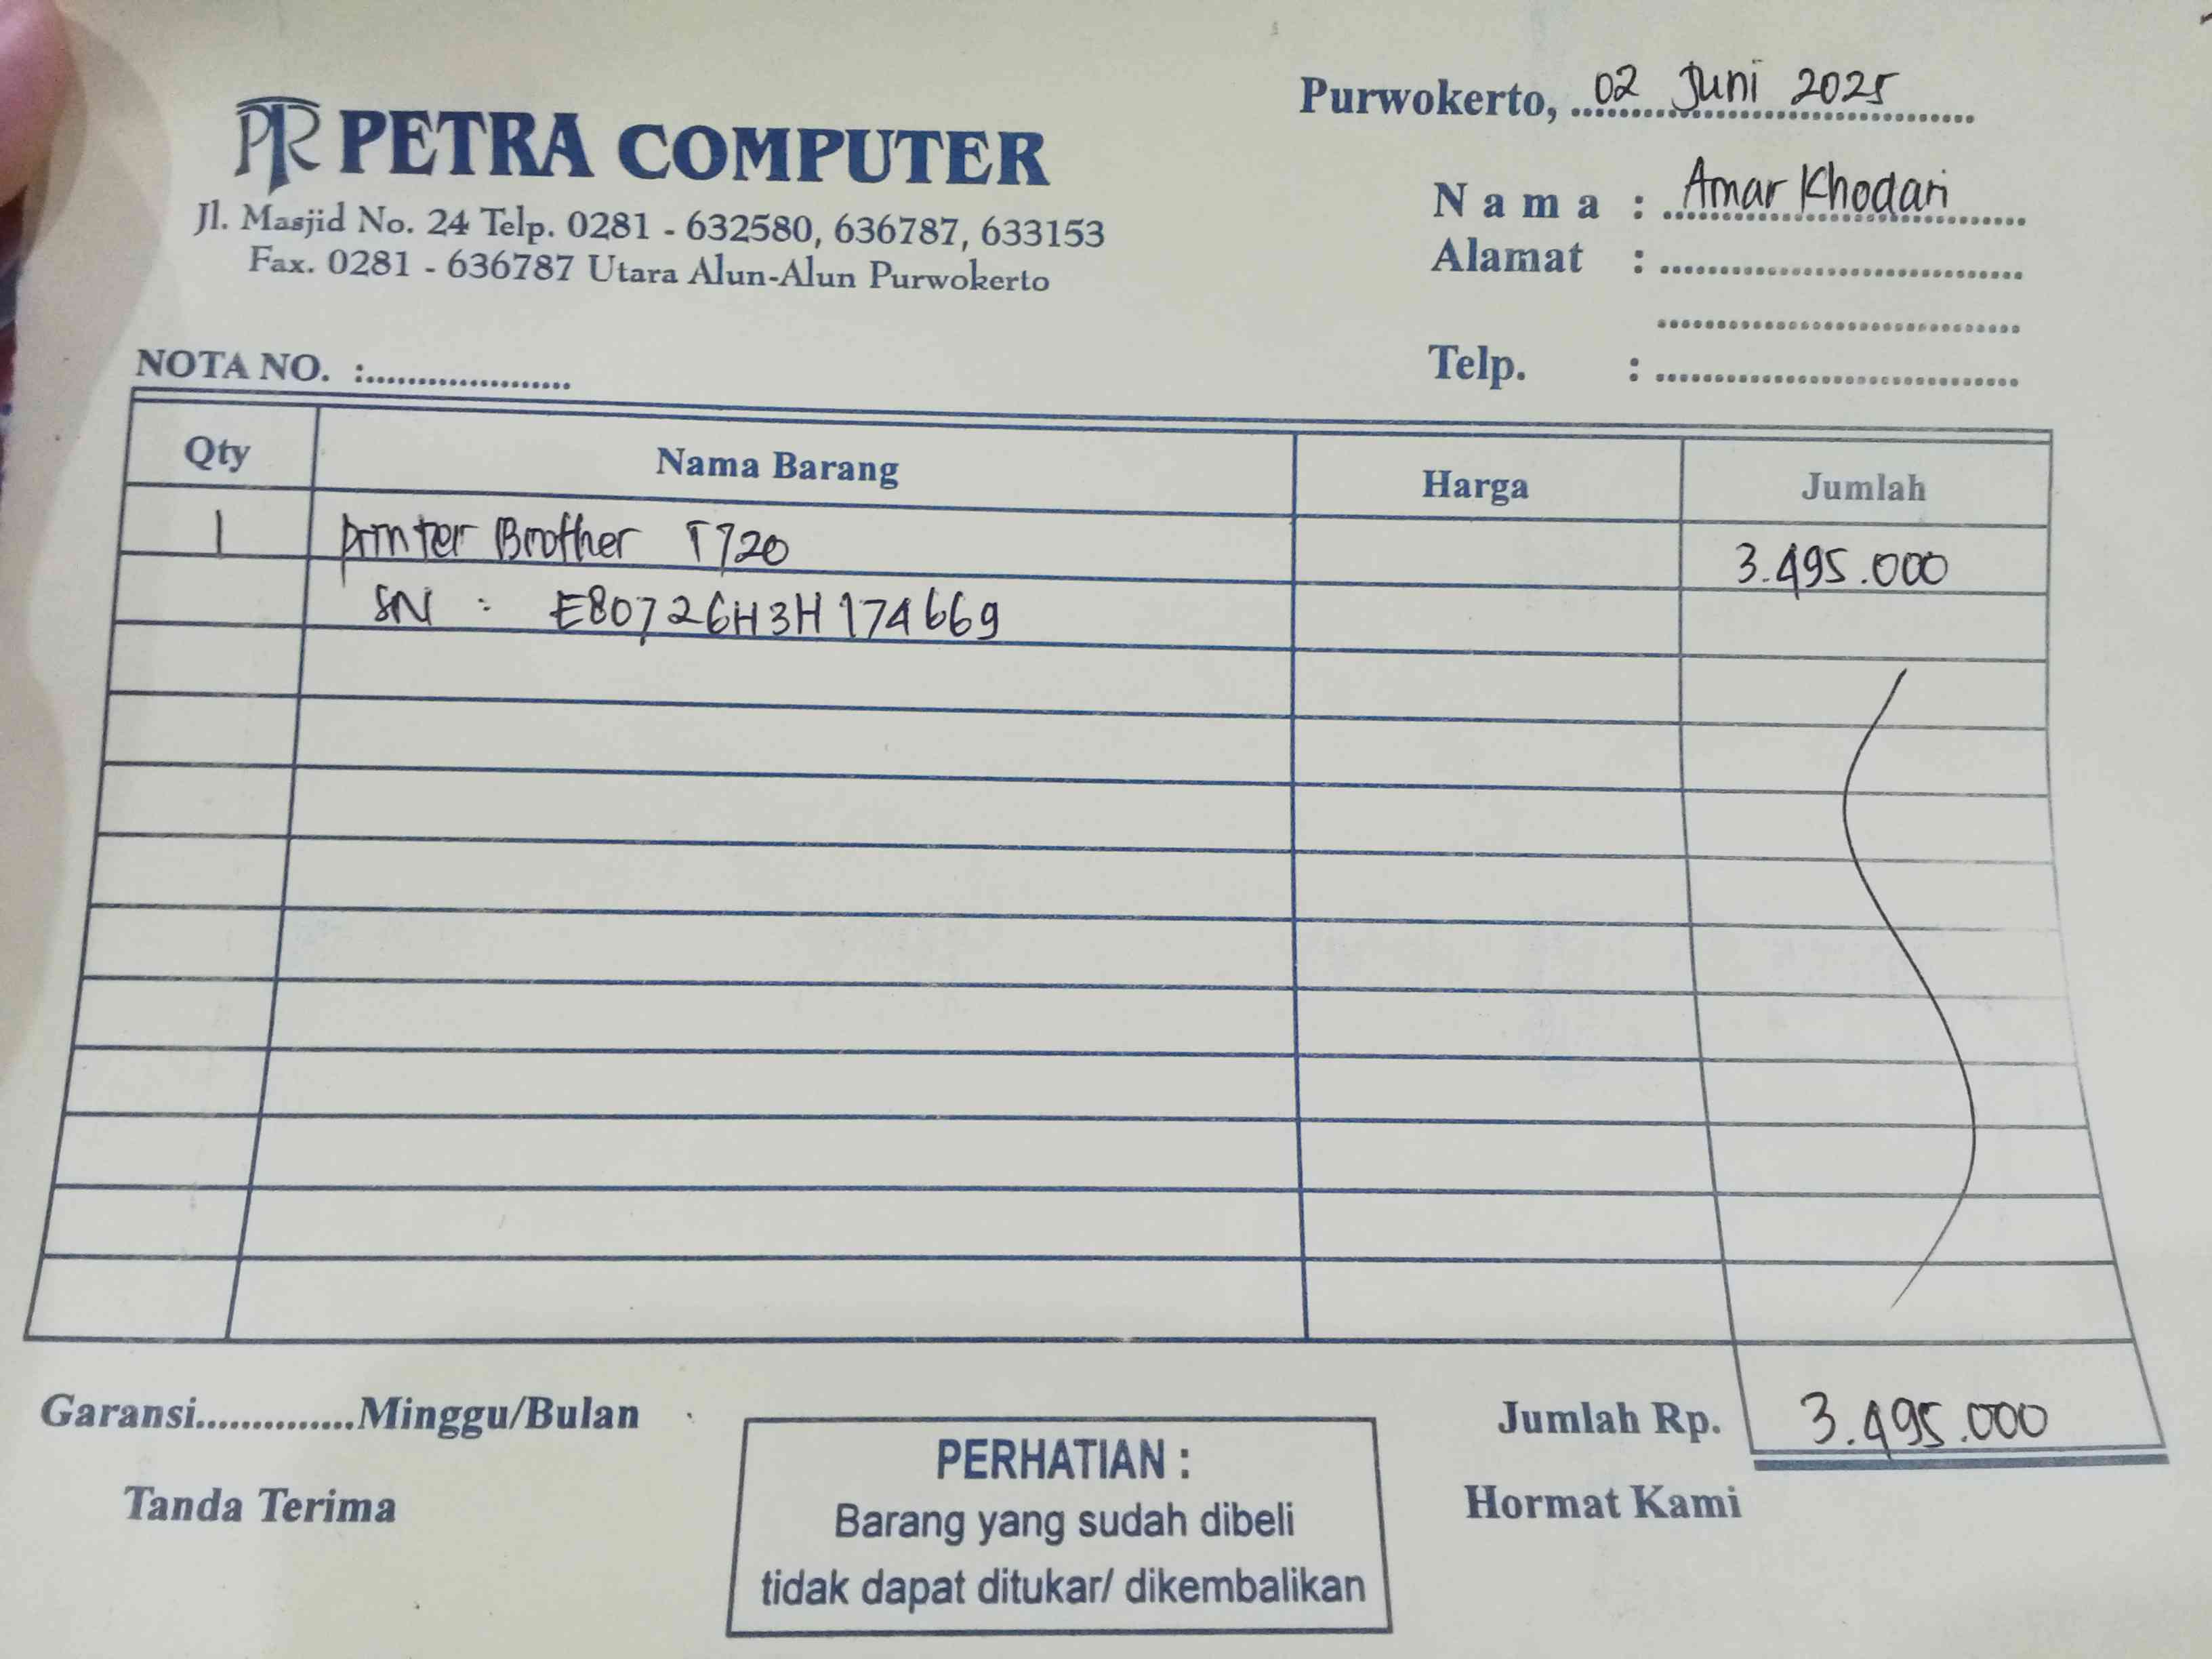 PR PETRA COMPUTER
Jl. Masjid No. 24 Telp. 0281 - 632580, 636787, 633153
Fax. 0281 - 636787 Utara Alun-Alun Purwokerto
Purwokerto, 02 Juni 2025
Nama : Amar Khodari
Alamat :
Telp. :
NOTA NO. :
Qty Nama Barang Harga Jumlah
1 printer Brother T720 3.495.000
SN : E80726H3H174669
Garansi..............Minggu/Bulan
Jumlah Rp. 3.495.000
Tanda Terima
Hormat Kami
PERHATIAN :
Barang yang sudah dibeli
tidak dapat ditukar/ dikembalikan